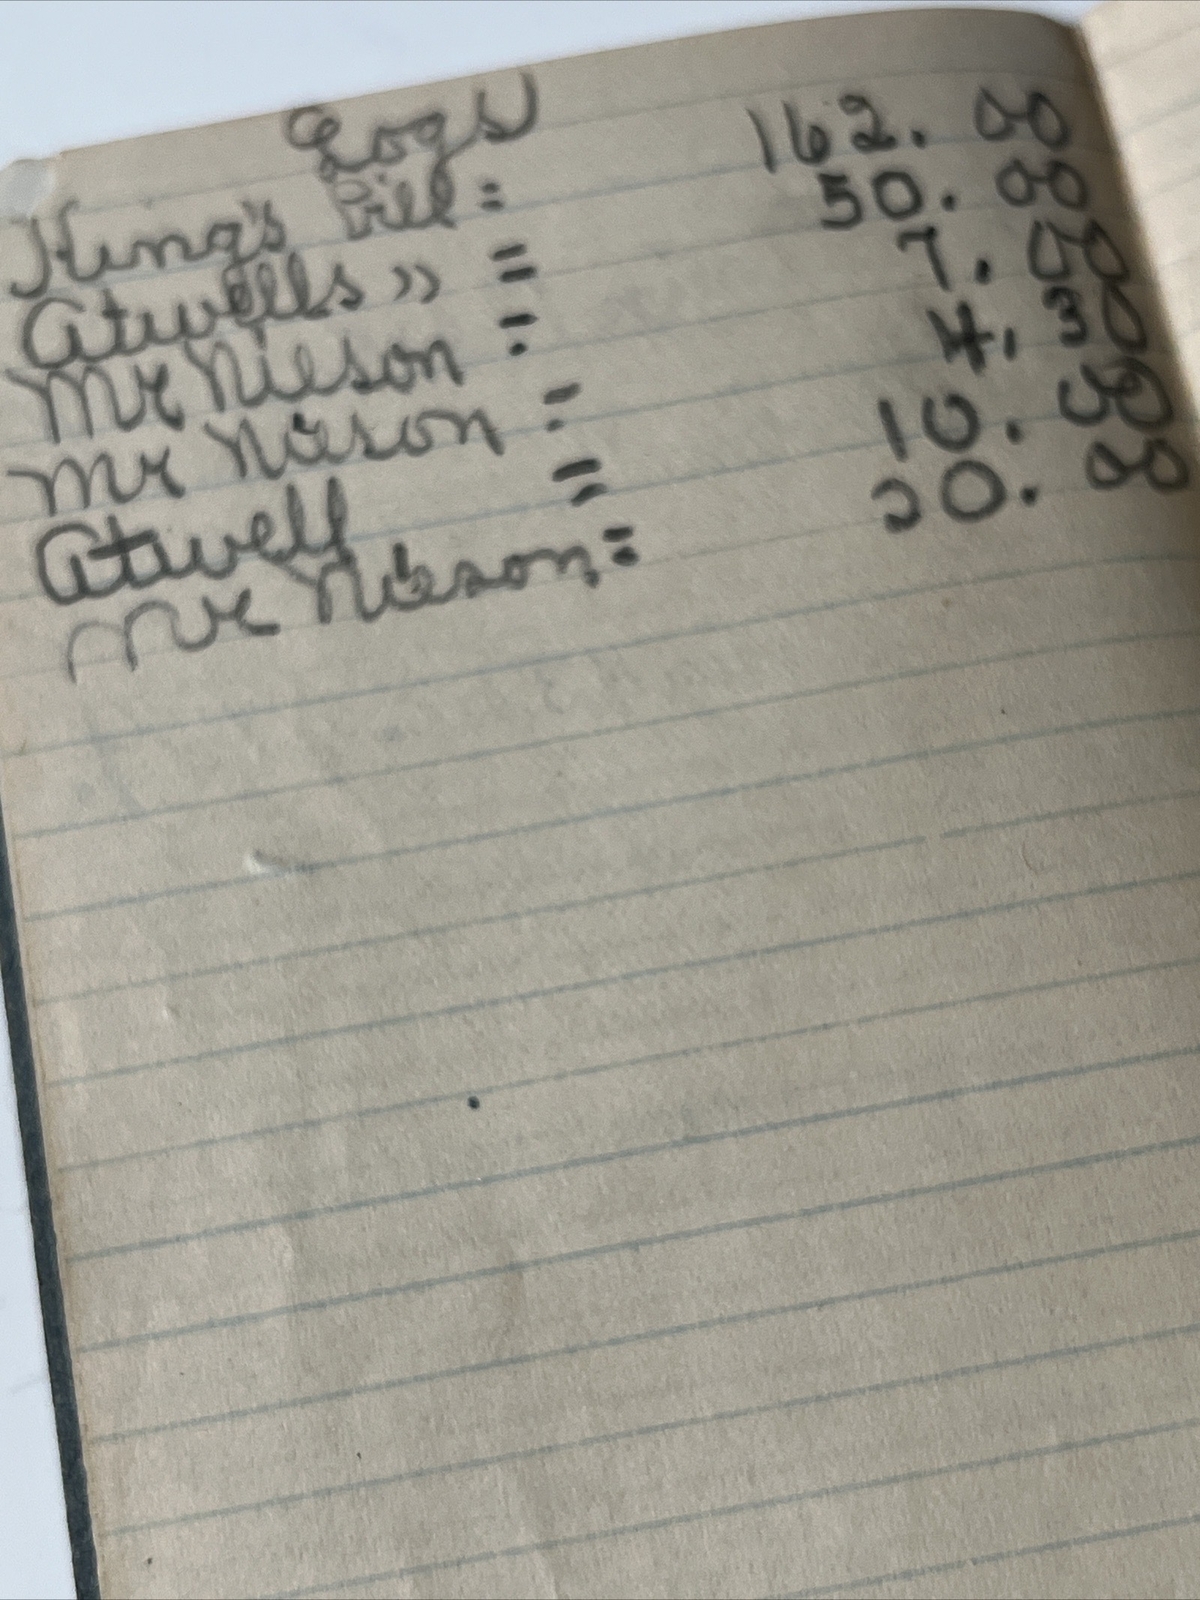 Logs
King's Bill = 162.00
Atwells " = 50.00
Mr Nieson = 7.00
Mr Nieson = 4.30
Atwell = 10.00
Mr Nieson = 20.00